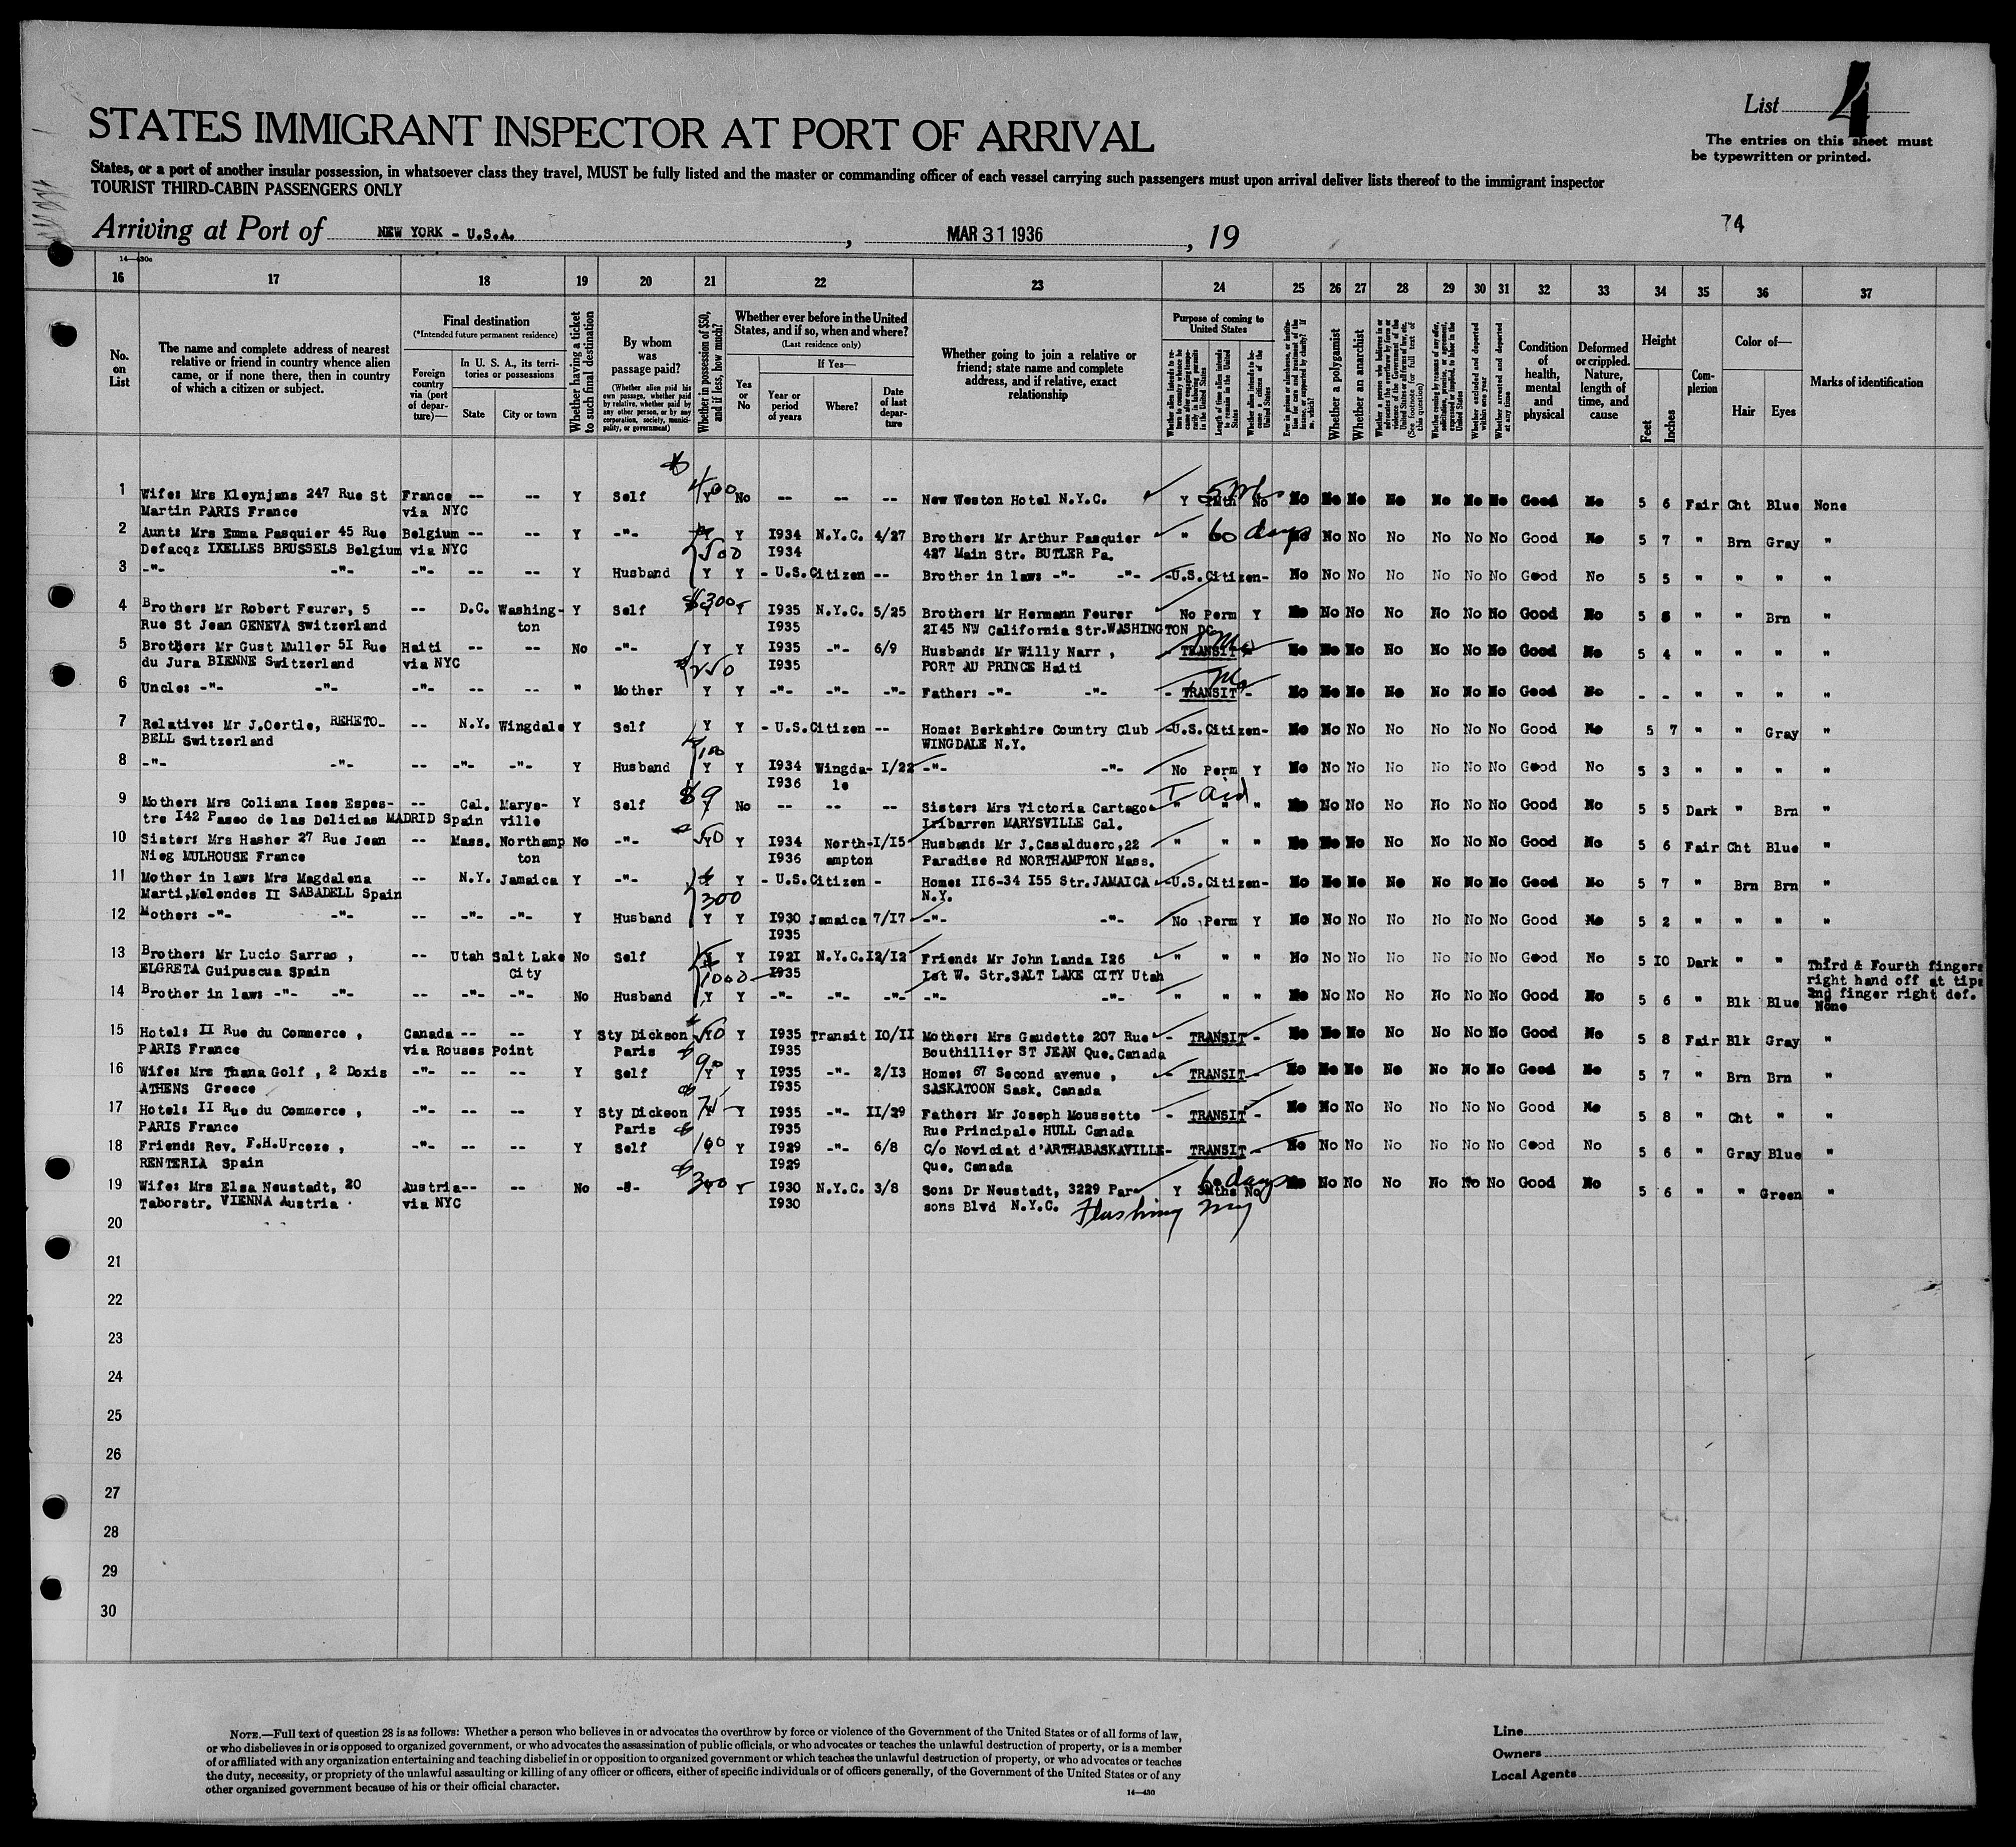 List 4
The entries on this sheet must
be typewritten or printed.
STATES IMMIGRANT INSPECTOR AT PORT OF ARRIVAL
States, or a port of another insular possession, in whatsoever class they travel, MUST be fully listed and the master or commanding officer of each vessel carrying such passengers must upon arrival deliver lists thereof to the immigrant inspector
TOURIST THIRD-CABIN PASSENGERS ONLY
74
Arriving at Port of NEW YORK - U.S.A. , MAR 31 1936 , 19
16 17 18 19 20 21 22 23 24 25 26 27 28 29 30 31 32 33 34 35 36 37
No. on List
The name and complete address of nearest
relative or friend in country whence alien
came, or if none there, then in country
of which a citizen or subject.
Final destination
(*Intended future permanent residence)
Foreign country via (port of departure)—
In U. S. A., its territories or possessions
State City or town
Whether having a ticket to such final destination
By whom was passage paid?
(Whether alien paid his own passage, whether paid by relative, whether paid by any other person, or by any corporation, society, municipality, or government)
Whether in possession of $50, and if less, how much?
Whether ever before in the United States, and if so, when and where?
(Last residence only)
Yes or No
If Yes—
Year or period of years Where? Date of last departure
Whether going to join a relative or
friend; state name and complete
address, and if relative, exact
relationship
Purpose of coming to United States
Length of time alien intends to remain in the United States
Whether a polygamist
Whether an anarchist
Whether excluded and deported within one year
Whether arrested and deported at any time
Condition of health, mental and physical
Deformed or crippled. Nature, length of time, and cause
Height
Feet Inches
Complexion
Color of—
Hair Eyes
Marks of identification
1 Wife: Mrs Kleynjans 247 Rue St France -- -- Y Self 400 Y No -- -- -- New Weston Hotel N.Y.C. Y No No No No No No No No Good No 5 6 Fair Cht Blue None
Martin PARIS France via NYC
2 Aunt: Mrs Emma Pasquier 45 Rue Belgium -- -- Y -"- Y I934 N.Y.C. 4/27 Brother: Mr Arthur Pasquier " 60 days No No No No No No No Good No 5 7 " Brn Gray "
Defacqz IXELLES BRUSSELS Belgium via NYC 500 I934 427 Main Str. BUTLER Pa.
3 -"- -"- -"- -- -- Y Husband Y Y - U.S.Citizen -- Brother in law: -"- -"- -U.S.Citizen- No No No No No No No Good No 5 5 " " " "
4 Brother: Mr Robert Feurer, 5 -- D.C. Washing- Y Self $300 Y I935 N.Y.C. 5/25 Brother: Mr Hermann Feurer No Perm Y No No No No No No No Good No 5 " " Brn "
Rue St Jean GENEVA Switzerland ton I935 2I45 NW California Str.WASHINGTON DC
5 Brother: Mr Gust Muller 5I Rue Haiti -- -- No -"- Y Y I935 -"- 6/9 Husband: Mr Willy Narr , - TRANSIT - No No No No No No No Good No 5 4 " " " "
du Jura BIENNE Switzerland via NYC $250 I935 PORT AU PRINCE Haiti
6 Uncle: -"- -"- -"- -- -- " Mother Y Y -"- -"- -"- Father: -"- -"- - TRANSIT - No No No No No No No Good No - - " " " "
7 Relative: Mr J.Oertle, REHETO- -- N.Y. Wingdale Y Self Y Y - U.S.Citizen -- Home: Berkshire Country Club -U.S.Citizen- No No No No No No No Good No 5 7 " " Gray "
BELL Switzerland 100 WINGDALE N.Y.
8 -"- -"- -- -"- -"- Y Husband Y Y I934 Wingda- I/22 -"- -"- No Perm Y No No No No No No No Good No 5 3 " " " "
I936 le
9 Mother: Mrs Coliana Ises Espes- -- Cal. Marys- Y Self $9 No -- -- -- Sister: Mrs Victoria Cartago " " " No No No No No No No Good No 5 5 Dark " Brn "
tre I42 Paseo de las Delicias MADRID Spain ville Iribarren MARYSVILLE Cal.
10 Sister: Mrs Hasher 27 Rue Jean -- Mass. Northamp No -"- 50 Y I934 North- I/I5 Husband: Mr J.Casalduerc,22 " " " No No No No No No No Good No 5 6 Fair Cht Blue "
Nieg MULHOUSE France ton I936 ampton Paradise Rd NORTHAMPTON Mass.
11 Mother in law: Mrs Magdalena -- N.Y. Jamaica Y -"- Y - U.S.Citizen - Home: II6-34 I55 Str.JAMAICA -U.S.Citizen- No No No No No No No Good No 5 7 " Brn Brn "
Marti,Melendes II SABADELL Spain 300 N.Y.
12 Mother: -"- -"- -- -"- -"- Y Husband Y Y I930 Jamaica 7/I7 -"- -"- No Perm Y No No No No No No No Good No 5 2 " " " "
I935
13 Brother: Mr Lucio Sarrao , -- Utah Salt Lake No Self Y I92I N.Y.C. I2/I2 Friend: Mr John Landa I26 " " " No No No No No No No Good No 5 IO Dark " " Third & Fourth fingers
ELGRETA Guipuscua Spain City 1000 I935 Ist W. Str.SALT LAKE CITY Utah right hand off at tips
14 Brother in law: -"- -"- -- -"- -"- No Husband Y Y -"- -"- -"- -"- -"- " " " No No No No No No No Good No 5 6 " Blk Blue 2nd finger right def.
None
15 Hotel: II Rue du Commerce , Canada -- -- Y Sty Dickson 50 Y I935 Transit IO/II Mother: Mrs Gaudette 207 Rue - TRANSIT - No No No No No No No Good No 5 8 Fair Blk Gray "
PARIS France via Rouses Point Paris I935 Bouthillier ST JEAN Que.Canada
16 Wife: Mrs Thana Golf , 2 Doxis -"- -- -- Y Self 90 Y Y I935 -"- 2/I3 Home: 67 Second avenue , - TRANSIT - No No No No No No No Good No 5 7 " Brn Brn "
ATHENS Greece I935 SASKATOON Sask. Canada
17 Hotel: II Rue du Commerce , -"- -- -- Y Sty Dickson Y I935 -"- II/29 Father: Mr Joseph Moussette - TRANSIT - No No No No No No No Good No 5 8 " Cht " "
PARIS France Paris I935 Rue Principale HULL Canada
18 Friend: Rev. F.H.Urceze , -"- -- -- Y Self 100 Y I929 -"- 6/8 C/o Noviciat d'ARTHABASKAVILLE- TRANSIT - No No No No No No No Good No 5 6 " Gray Blue "
RENTERIA Spain I929 Que. Canada
19 Wife: Mrs Elsa Neustadt, 20 Austria -- -- No $300 Y I930 N.Y.C. 3/8 Son: Dr Neustadt, 3229 Par- Y 60 days No No No No No No No No Good No 5 6 " " Green "
Taborstr. VIENNA Austria via NYC I930 sons Blvd N.Y.C. Flushing NY
20
21
22
23
24
25
26
27
28
29
30
NOTE.—Full text of question 28 is as follows: Whether a person who believes in or advocates the overthrow by force or violence of the Government of the United States or of all forms of law,
or who disbelieves in or is opposed to organized government, or who advocates the assassination of public officials, or who advocates or teaches the unlawful destruction of property, or is a member
of or affiliated with any organization entertaining and teaching disbelief in or opposition to organized government or which teaches the unlawful destruction of property, or who advocates or teaches
the duty, necessity, or propriety of the unlawful assaulting or killing of any officer or officers, either of specific individuals or of officers generally, of the Government of the United States or of any
other organized government because of his or their official character.
14—430
Line
Owners
Local Agents